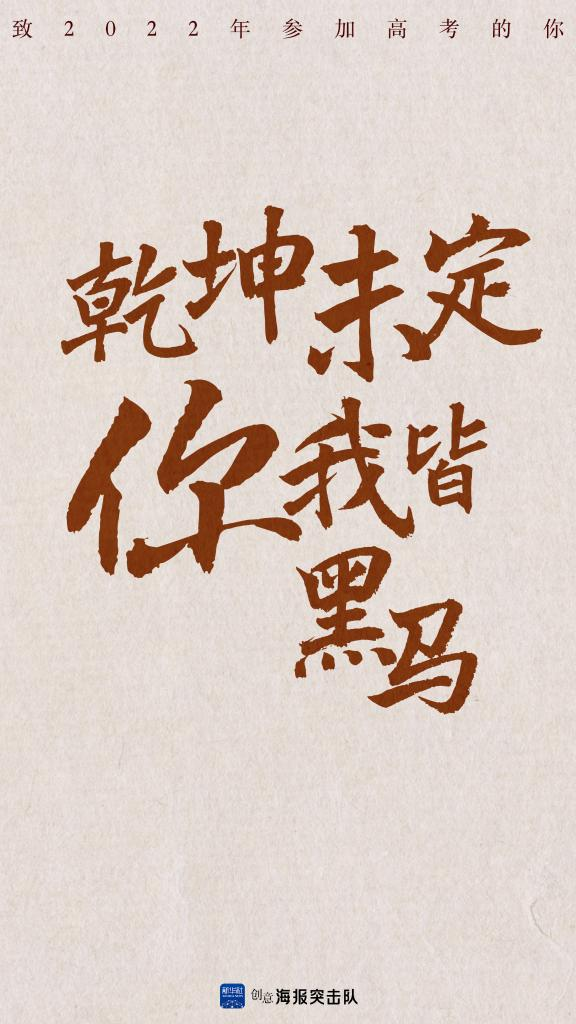 致2022年参加高考的你
乾坤未定
你我皆
黑马
新华社
创意海报突击队